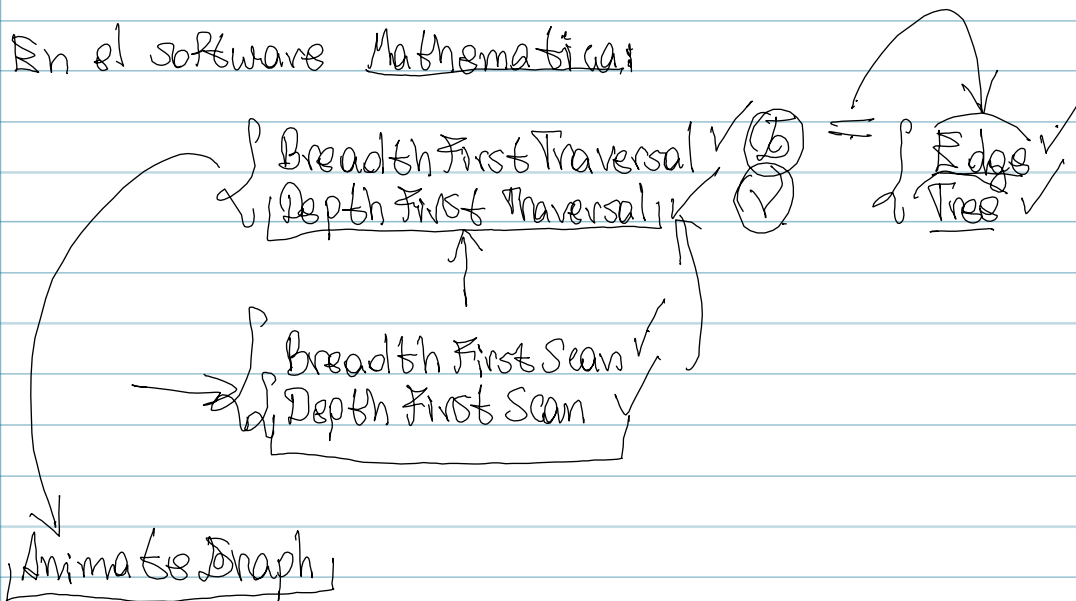 En el software Mathematica:
{ BreadthFirstTraversal ✓ G = { Edge ✓
DepthFirstTraversal ✓ V Tree ✓
{ BreadthFirstScan ✓
DepthFirstScan ✓
AnimateGraph